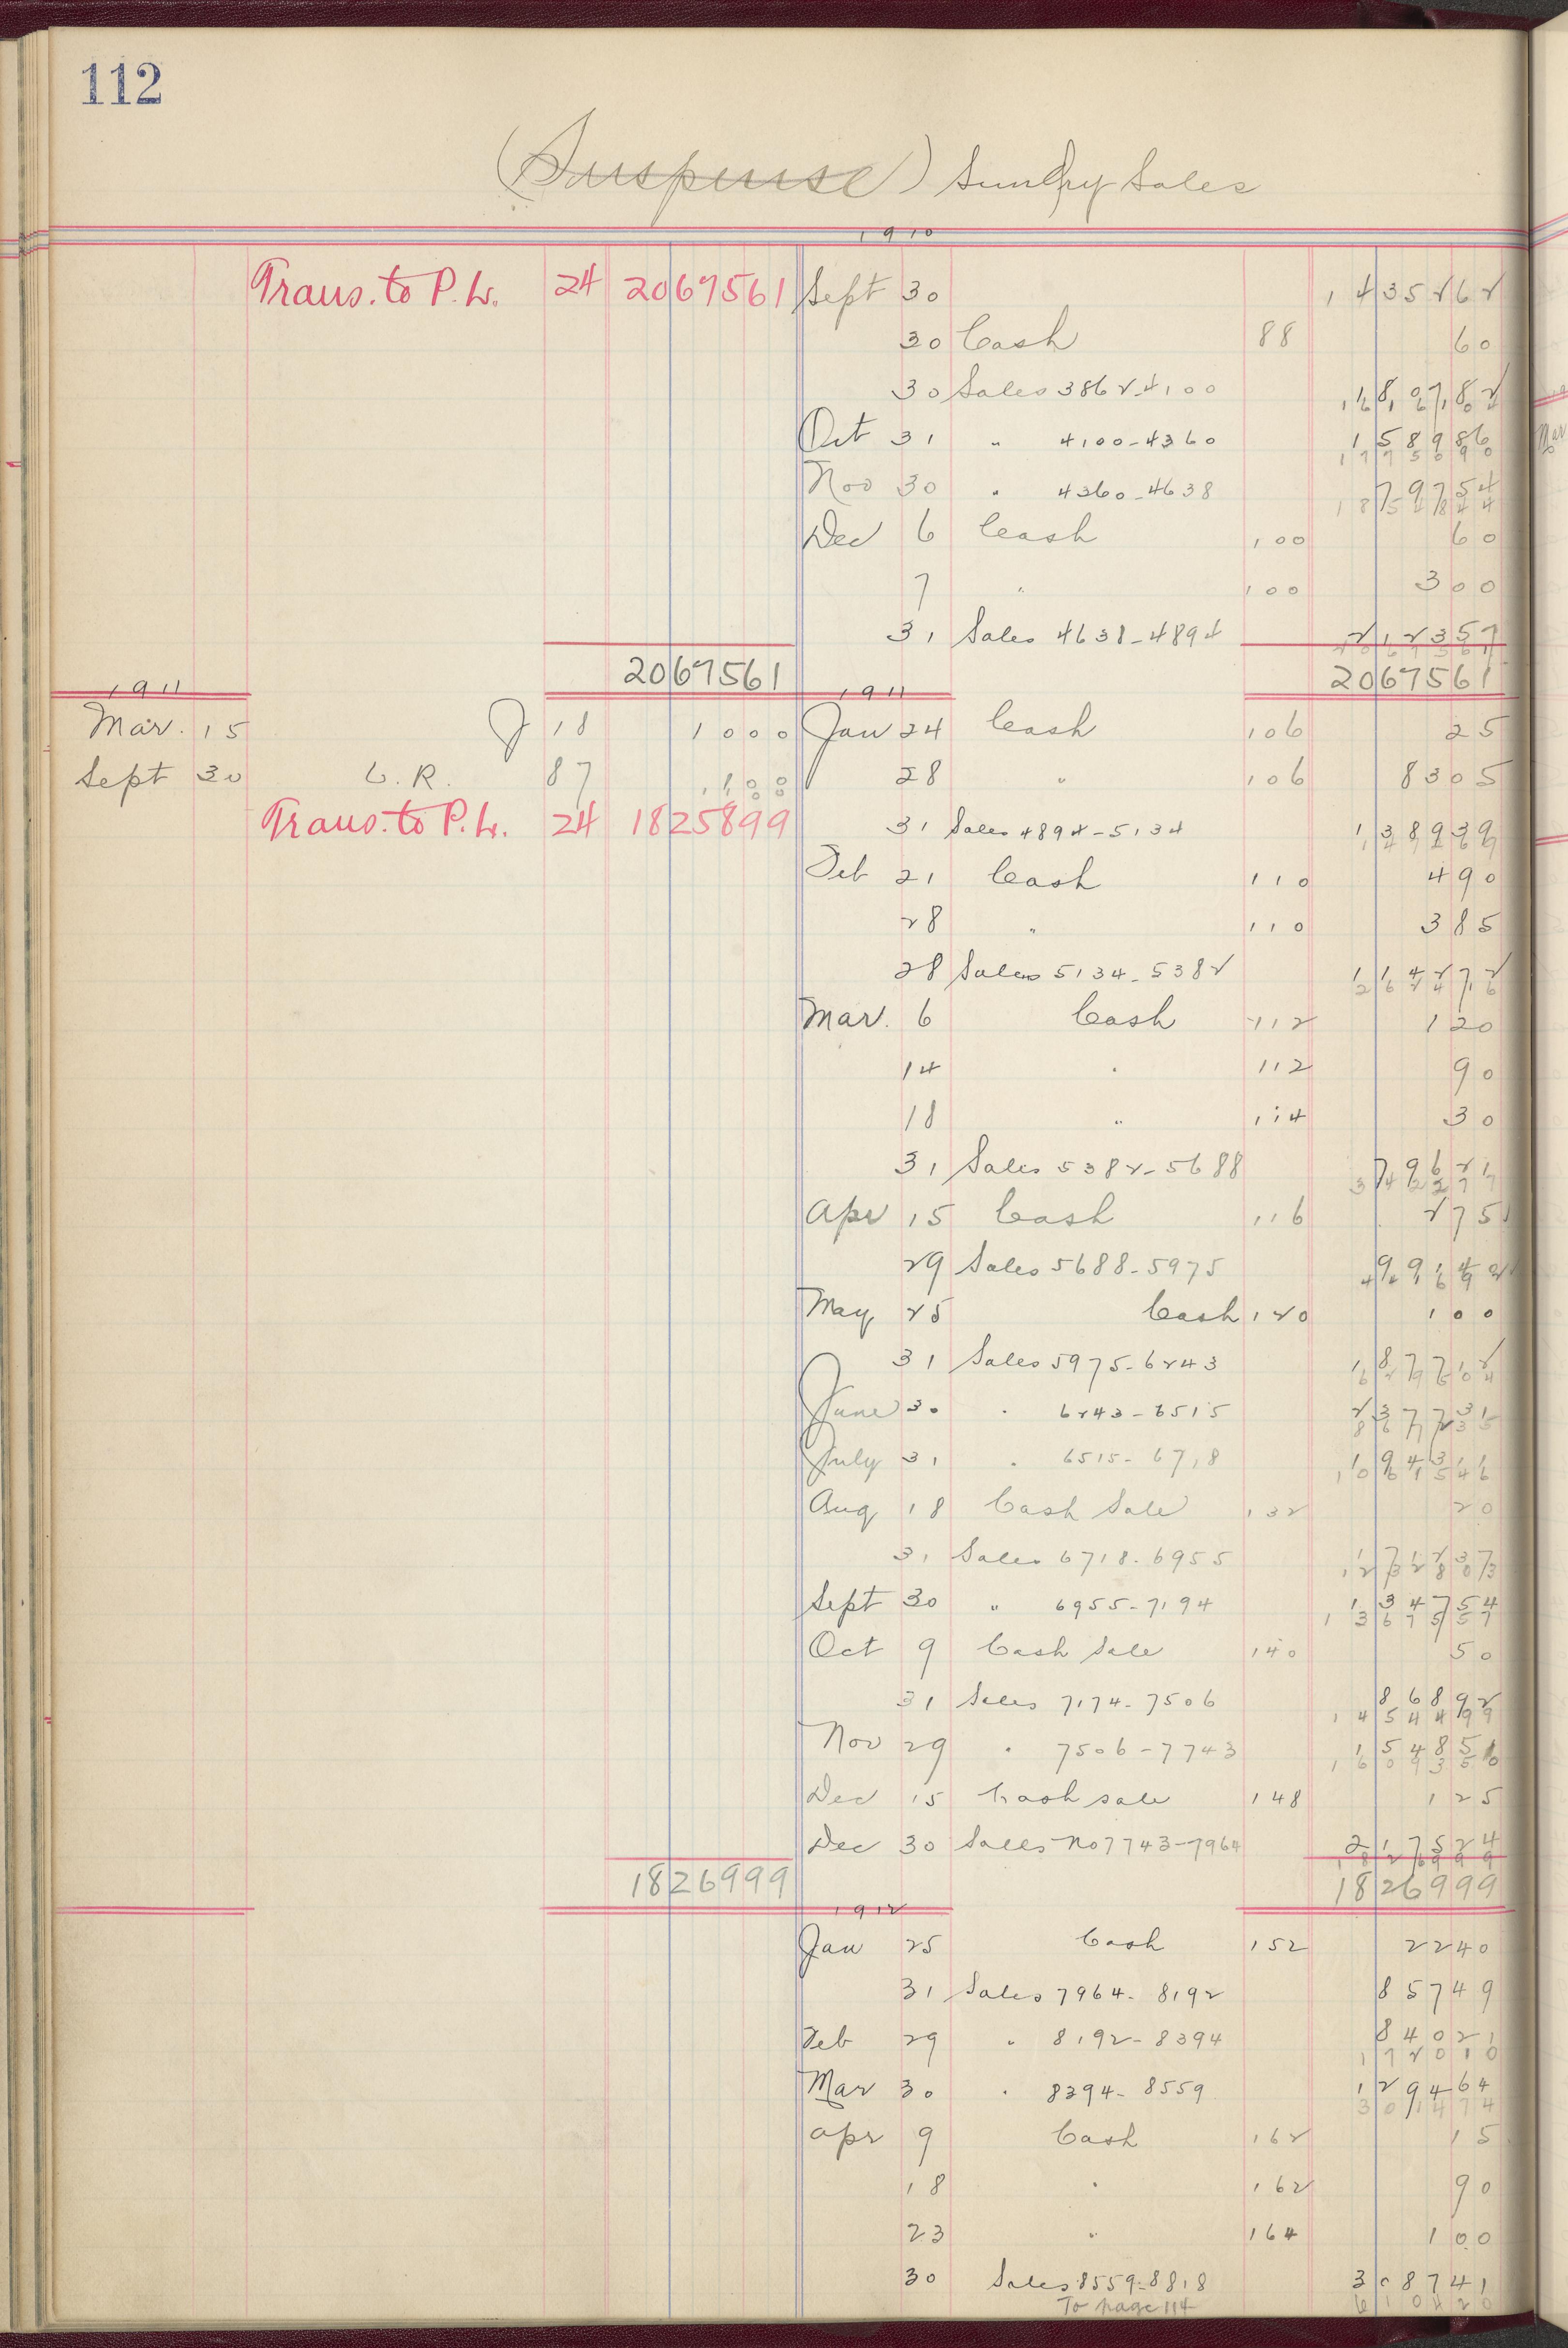 112
(Suspense) Sundry Sales
1910
Trans. to P. L. 24 2067561 Sept 30 1435262
30 Cash 88 60
30 Sales 3862-4100 180782
1616104
Oct 31 " 4100-4360 158986
1775090
Nov 30 " 4360-4638 79754
1854844
Dec 6 Cash 100 60
7 " 100 300
31 Sales 4638-4894 212357
2067561
2067561 2067561
1911 1911
Mar. 15 J 18 1000 Jan 24 Cash 106 25
Sept 30 C. R. 87 100 28 " 106 8305
1100
Trans. to P. L. 24 1825899 31 Sales 4894-5134 138939
147269
Feb 21 Cash 110 490
28 " 110 385
28 Sales 5134-5382 114272
262416
Mar. 6 Cash 112 120
14 " 112 90
18 " 114 30
31 Sales 5382-5688 79621
342277
Apr 15 Cash 116 275
29 Sales 5688-5975 99140
441692
May 25 Cash 120 100
31 Sales 5975-6243 187712
629504
June 30 " 6243-6515 237731
867235
July 31 " 6515-6718 194311
1061546
Aug 18 Cash Sale 132 20
31 Sales 6718-6955 171237
1232803
Sept 30 " 6955-7194 134754
1367557
Oct 9 Cash Sale 140 50
31 Sales 7174-7506 86892
1454499
Nov 29 " 7506-7743 154851
1609350
Dec 15 Cash sale 148 125
Dec 30 Sales No 7743-7964 217524
1826999
1826999 1826999
1912
Jan 25 Cash 152 2240
31 Sales 7964-8192 85749
Feb 29 " 8192-8394 84021
172010
Mar 30 " 8394-8559 129464
301474
Apr 9 Cash 162 15
18 " 162 90
23 " 164 100
30 Sales 8559-8818 308741
To page 114 610420